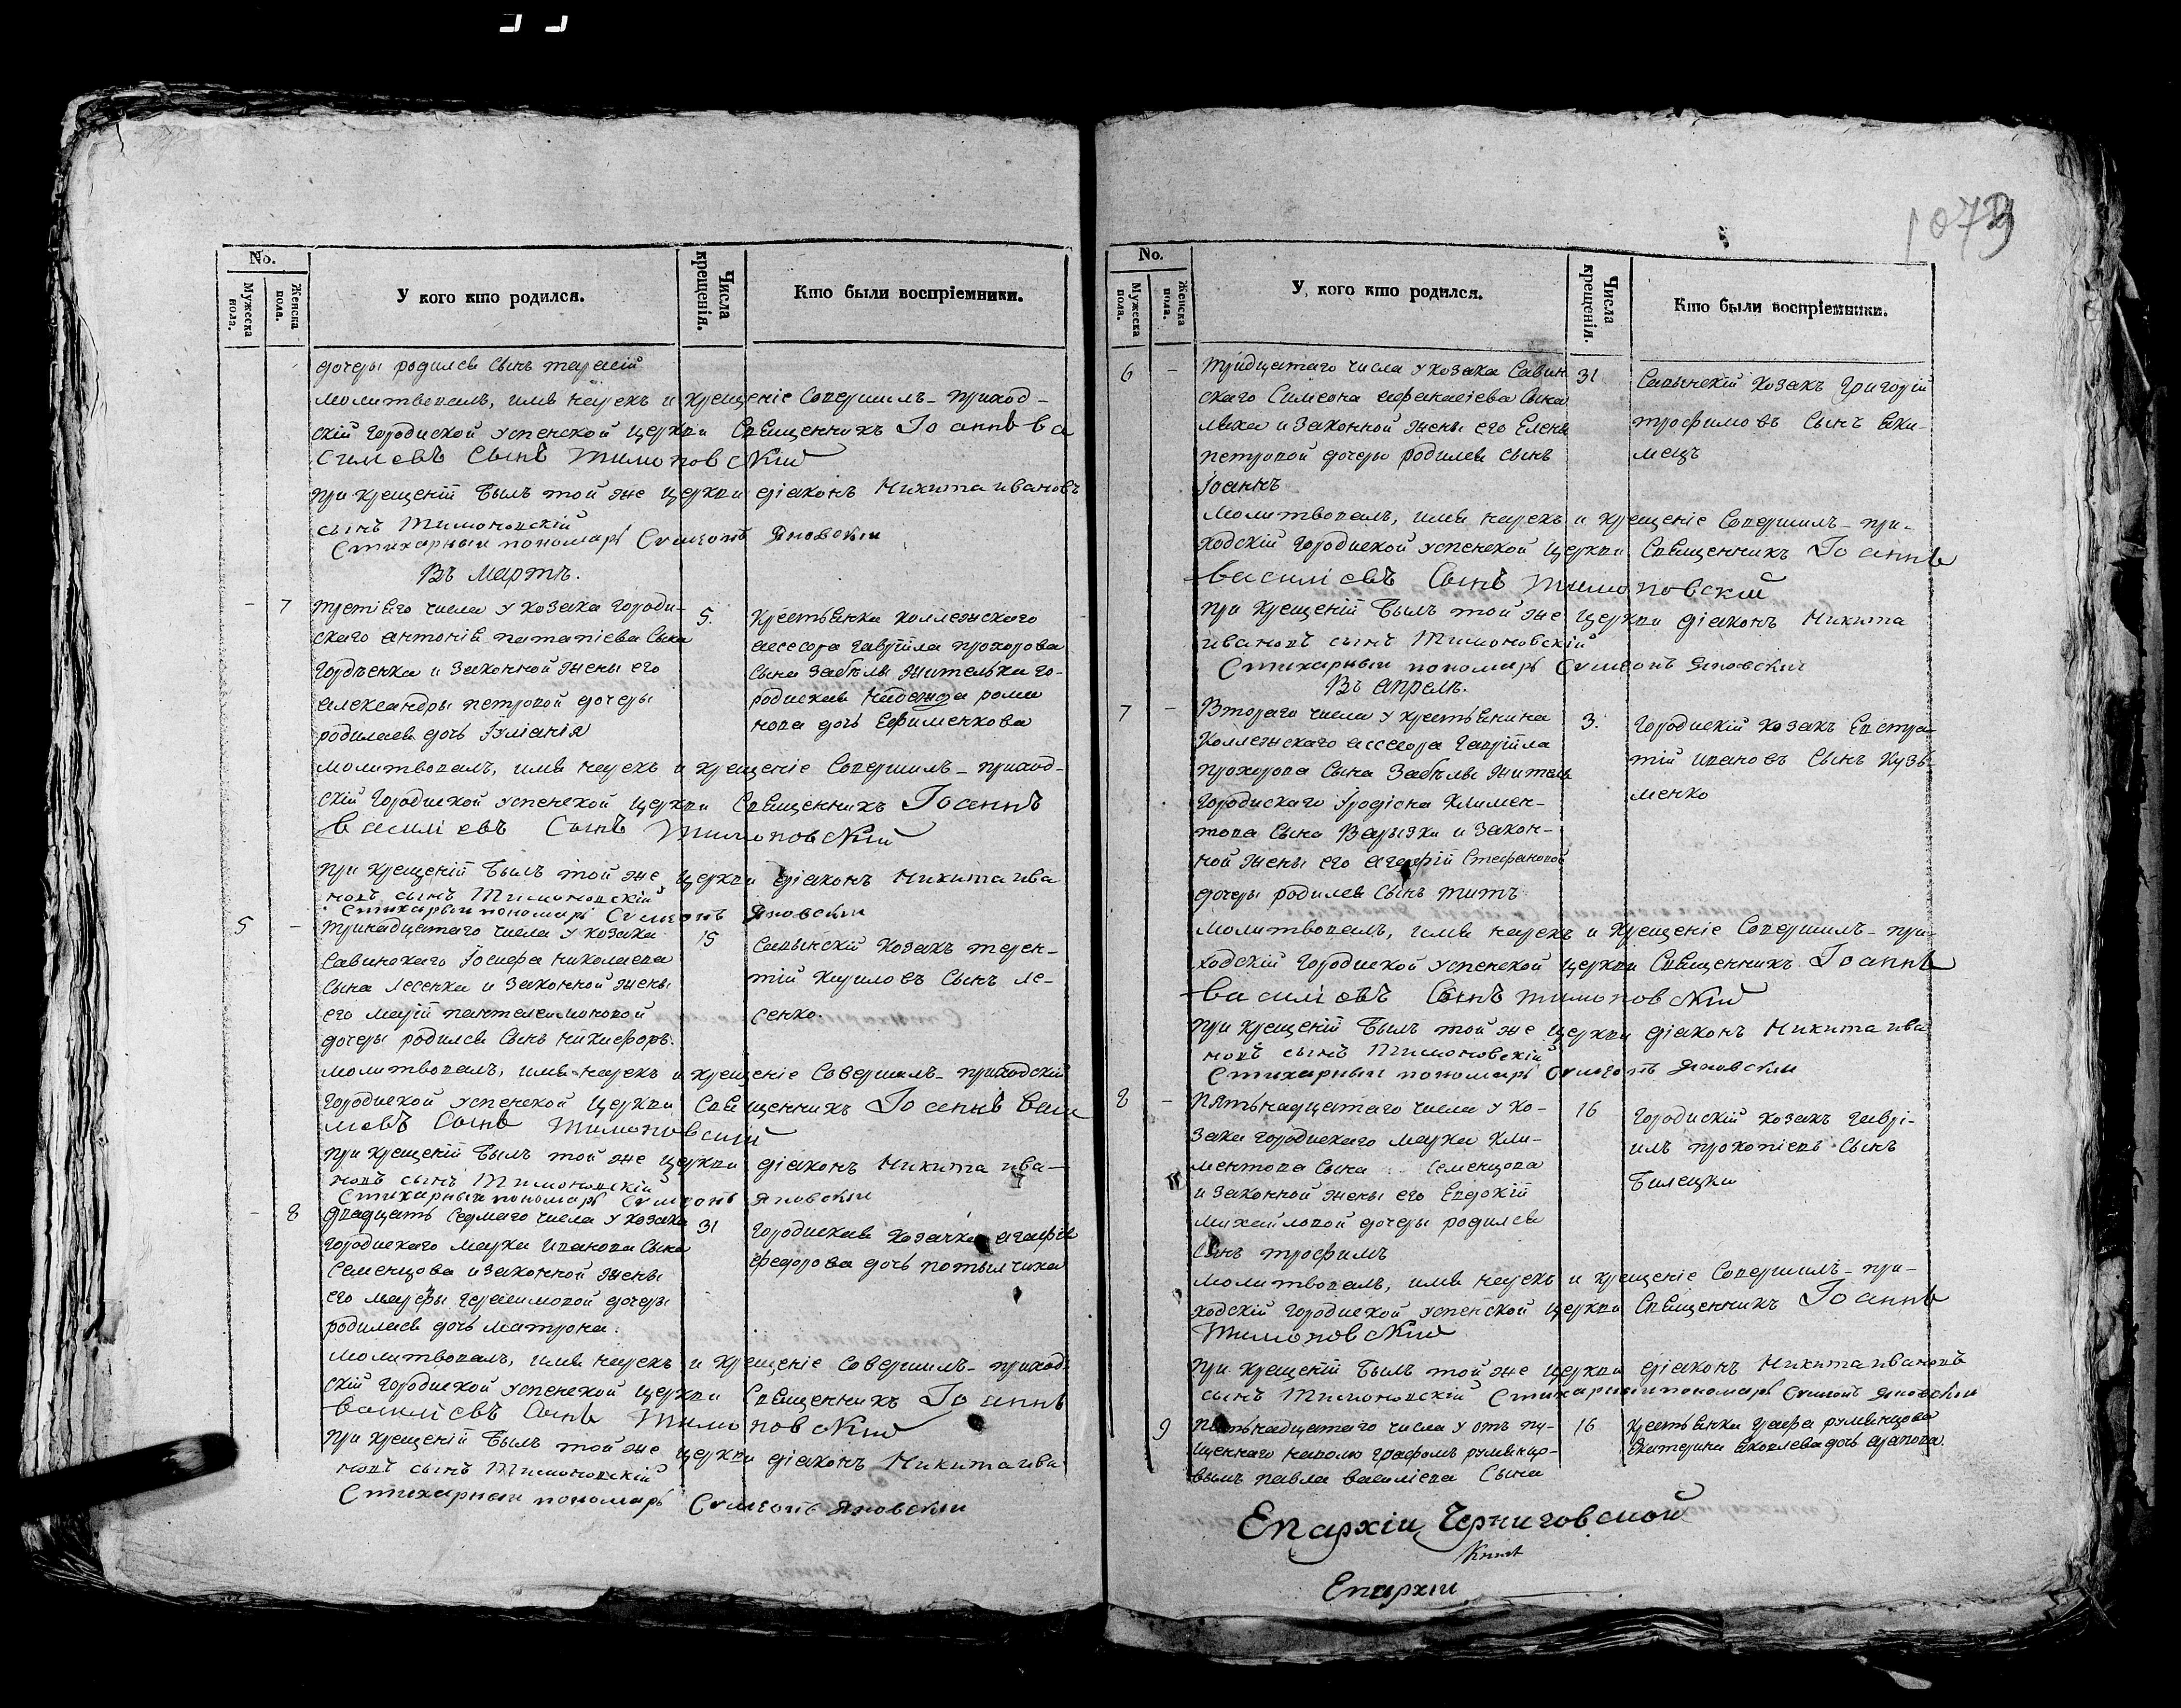 No.
Мужеска пола.
Женска пола.
У кого кто родился.
Числа крещенія.
Кто были воспріемники.
дочеры родился Сынъ тарасій
молитвовалъ, имя нарекъ и крещеніе Совершилъ приход-
скій Городиской Успенской церкви Священникъ Іоаннъ Ва
силіевъ Сынъ Тимоновскій
при крещеніи былъ той же церкви діаконъ Никита ивановъ
сынъ Тимоновскій
Стихарный пономарь Сумеонъ Яновскій
Въ мартѣ.
- 7 третіего числа у козака Городи-
скаго антонія патапіева Сына
Гордѣенка и Законной жены его
александры петровой дочеры
родилася дочь Іуліанія
5.
Крестьянка коллежскаго
асесора гавріила прохорова
Сына Забѣлы жителька го-
родиская Надежда рома
нова дочь Ефименкова
молитвовалъ, имя нарекъ и крещеніе Совершилъ приход-
скій Городиской Успенской церкви Священникъ Іоаннъ
Василіевъ Сынъ Тимоновскій
при крещеніи былъ той же церкви діаконъ Никита ива
новъ сынъ Тимоновскій
Стихарный пономарь Сумеонъ Яновскій
5 - тринадцатаго числа у козака
Савинскаго Іосифа николаева
Сына Лесенка и Законной жены
его маріи пантелеимоновой
дочеры родился Сынъ никифоръ.
15
Савинскій козакъ терен-
тій кириловъ Сынъ ле-
сенко.
молитвовалъ, имя нарекъ и крещеніе Совершилъ приходскій
Городиской Успенской церкви Священникъ Іоаннъ Васи
ліевъ Сынъ Тимоновскій
при крещеніи былъ той же церкви діаконъ Никита ива-
новъ сынъ Тимоновскій
Стихарный пономарь Сумеонъ Яновскій
- 8 двадцать седмаго числа у козака
городискаго марка иванова Сына
Семенцова и законной жены
его марфы герасимовой дочеры
родилася дочь матрона.
31
Городиская козачка агафія
федорова дочь потылчика
молитвовалъ, имя нарекъ и крещеніе совершилъ приход-
скій Городиской Успенской церкви Священникъ Іоаннъ
Василіевъ Сынъ Тимоновскій
при крещеніи былъ той же церкви діаконъ Никита ива
новъ сынъ Тимоновскій
Стихарный пономарь Сумеонъ Яновскій
1073
No.
Мужеска пола.
Женска пола.
У кого кто родился.
Числа крещенія.
Кто были воспріемники.
6 - тридцатаго числа у козака Савин
скаго Симеона афанасіева Сына
ляха и Законной жены его Елены
петровой дочеры родился сынъ
Іоаннъ
31
Савинскій козакъ Григорій
трофимовъ Сынъ яки-
мецъ
молитвовалъ, имя нарекъ и крещеніе Совершилъ при-
ходскій Городиской Успенской церкви Священникъ Іоаннъ
Василіевъ Сынъ Тимоновскій
при крещеніи былъ той же церкви діаконъ Никита
ивановъ сынъ Тимоновскій
Стихарный пономарь Сумеонъ Яновскій
Въ апрелѣ.
7 - Втораго числа у крестьянина
Коллежскаго ассесора гавріила
прохорова Сына Забѣлы жителя
Городискаго Иродіона Климен-
това Сына и Закон-
ной жены его агафіи Стефановой
дочеры родился Сынъ титъ
3.
Городискій козакъ Евстра-
тій ивановъ Сынъ Кузь-
менко
молитвовалъ, имя нарекъ и крещеніе Совершилъ при-
ходскій Городиской Успенской церкви Священникъ Іоаннъ
Василіевъ Сынъ Тимоновскій
при крещеніи былъ той же церкви діаконъ Никита ива
новъ сынъ Тимоновскій
Стихарный пономарь Сумеонъ Яновскій
8 - Пятьнадцатаго числа у ко-
зака городискаго марка кли-
ментова Сына Семенцова
и Законной жены его Евдокіи
михайловой дочеры родился
Сынъ трофимъ
16
Городискій козакъ гаврі-
илъ прокопіевъ Сынъ
Билецкій
молитвовалъ, имя нарекъ и крещеніе Совершилъ при-
ходскій Городиской Успенской церкви Священникъ Іоаннъ
Тимоновскій
при крещеніи былъ той же церкви діаконъ Никита ивановъ
сынъ Тимоновскій Стихарный пономарь Сумеонъ Яновскій
9 Пятьнадцатаго числа у отъ пу-
щеннаго наволю графомъ румянцо-
вымъ павла василіева Сына
16
Крестьянка графа румянцова
Екатерина яковлева дочь
Епархіи Черниговской
Епархіи